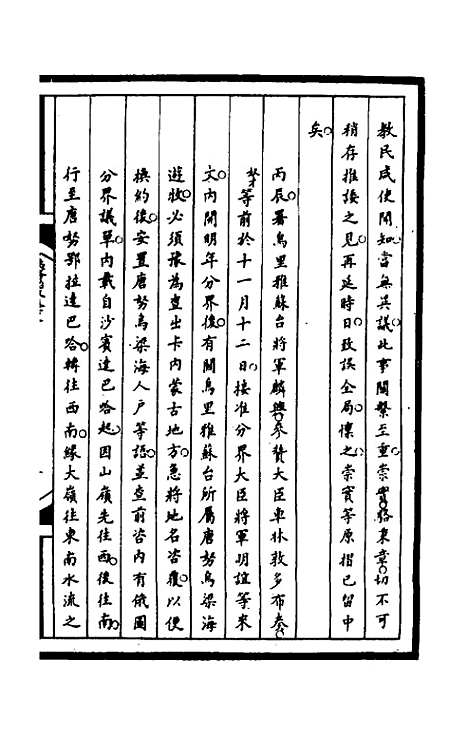 教民咸使聞知當無異議此事關繫至重崇實駱秉章切不可
稍存推諉之見再延時日致誤全局懍之崇實等原摺已留中
矣
丙辰署烏里雅蘇台將軍麟興參贊大臣車林敦多布奏
奴才等前於十一月十二日接准分界大臣將軍明誼等來
文內開明年分界後有關烏里雅蘇台所屬唐努烏梁海
遊牧必須豫為查出卡內蒙古地方急將地名咨覆以便
換約後安置唐努烏梁海人戶等語並查前咨內有俄國
分界議單內載自沙賓達巴哈起因山嶺先往西後往南
行至唐努鄂拉達巴哈轉往西南緣大嶺往東南水流之